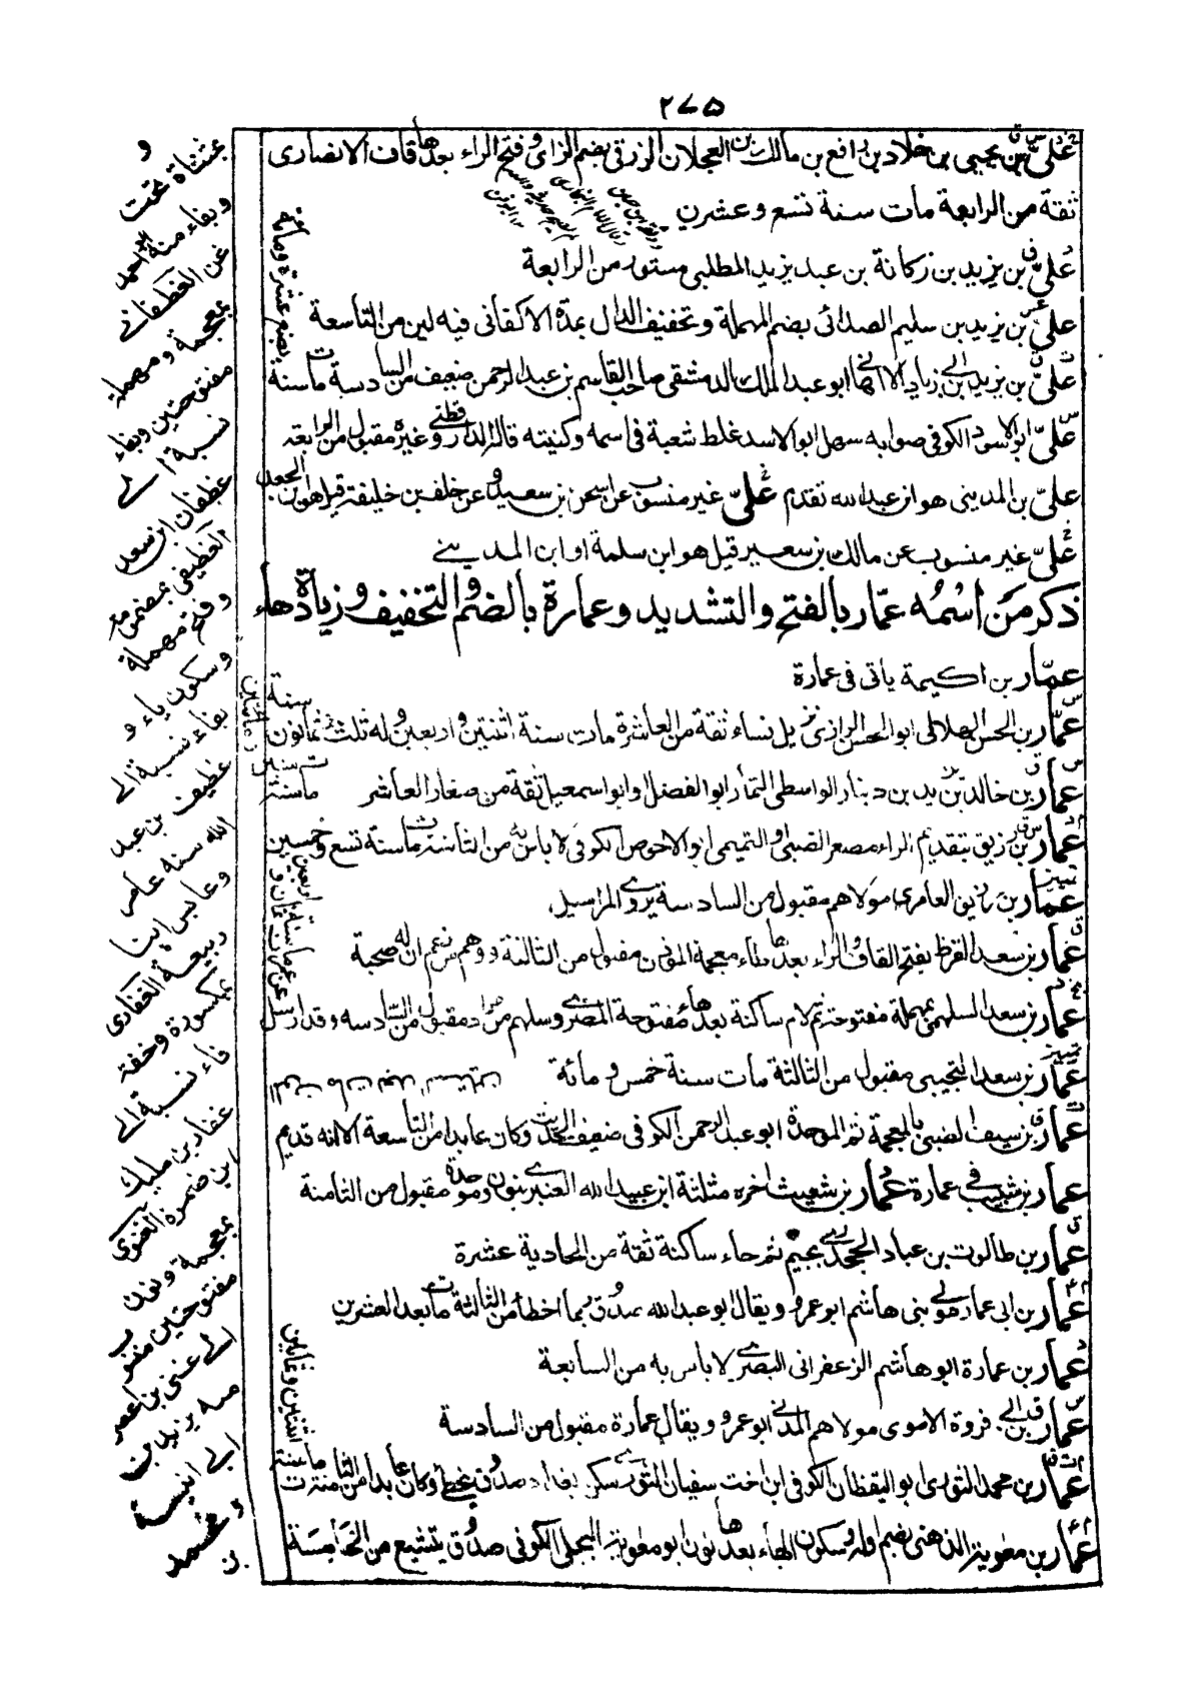 ٢٧٥
عليّ بن يحيى بن خلاد بن رافع بن مالك بن العجلان الزرقي بضم الزاى وفتح الراء بعدها قاف الانصارى
ثقة من الرابعة مات سنة تسع وعشرين
عليّ بن يزيد بن ركانة بن عبد يزيد المطلبى مستور من الرابعة
عليّ بن يزيد بن سليم الصدائى بضم المهملة وتخفيف الدال بمدة الاكفانى فيه لين من التاسعة
عليّ بن يزيد بن ابي زياد الالهاني ابو عبد الملك الدمشقى صاحب القاسم بن عبد الرحمن ضعيف من السادسة مات سنة
بضع عشرة ومائة
عليّ ابو الاسود الكوفى صوابه سهل ابو الاسد غلط شعبة فى اسمه وكنيته قاله الدارقطني وغيره مقبول من الرابعة
عليّ بن المدينى هو ابن عبد الله تقدم عليّ غير منسوب عن اسحق بن سعيد وعن خلف بن خليفة قيل هو ابن الجعد
عليّ غير منسوب عن مالك بن سعير قيل هو ابن سلمة او ابن المديني
ذكر من اسمه عمّار بالفتح والتشديد وعمارة بالضم والتخفيف وزيادة هاء
عمّار بن اكيمة ياتى فى عمارة
عمّار بن الحسن الهلالى ابو الحسن الرازى نزيل نساء ثقة من العاشرة مات سنة اثنتين واربعين وله ثلث وثمانون
سنة
عمّار بن خالد بن يزيد بن دينار الواسطى التمار ابو الفضل او ابو اسمعيل ثقة من صغار العاشرة مات سنة ستين
عمّار بن رزيق بتقديم الراء مصغر الضبى او التميمى ابو الاحوص الكوفى لا باس به من الثامنة مات سنة تسع وخمسين
عمّار بن رزيق العامرى مولاهم مقبول من السادسة يروي المراسيل
عمّار بن سعد القرظ بفتح القاف والراء بعدها ظاء معجمة المؤذن مقبول من الثالثة ووهم من زعم ان له صحبة
عمّار بن سعد السلهمى بمهملة مفتوحة ثم لام ساكنة بعدها مفتوحة المصري وسلهم من مراد مقبول من السادسة وقد ارسل
عمّار بن سعد التجيبى مقبول من الثالثة مات سنة خمس ومائة
عمّار بن سيف الضبى بالمعجمة ثم الموحدة ابو عبد الرحمن الكوفى ضعيف الحديث وكان عابدا من التاسعة الا انه قديم
الموت مات بعد الستين
عمّار بن شبيب فى عمارة عمّار بن شعيث اخره مثلثة ابن عبيد الله العنبري بنون وموحدة مقبول من الثامنة
عمّار بن طالوت بن عباد الجحدري بجيم ثم حاء ساكنة ثقة من الحادية عشرة
عمّار بن ابى عمار مولى بنى هاشم ابو عمرو ويقال ابو عبد الله صدوق ربما اخطأ من الثالثة مات بعد العشرين
عمّار بن عمارة ابو هاشم الزعفرانى البصري لا باس به من السابعة
عمّار بن ابي فروة الاموى مولاهم المدني ابو عمرو ويقال عمارة مقبول من السادسة
عمّار بن محمد الثورى ابو اليقظان الكوفى ابن اخت سفيان الثوري سكن بغداد صدوق يخطئ وكان عابدا من الثامنة مات سنة
اثنتين وثمانين
عمّار بن معوية الدهنى بضم اوله وسكون الهاء بعدها نون ابو معوية البجلى الكوفى صدوق يتشيع من الخامسة
بمثناة تحت
و
وبفاء منه احمد
عن الغطفانے
بمعجمة ومهملة
مفتوحتين وبفاء
نسبة الے
غطفان ابن سعد
الغطيفى بمضمومة
وفتح مهملة
وسكون ياء و
بفاء نسبة الے
غطيف بن عبد
الله
ربيعة الغفارى
بمكسورة وخفة
فاء نسبة الے
غفار بن مليك
ابن ضمرة الغنوى
بمعجمة ونون
مفتوحتين منسوب
الے غنى بن اعصر
منه يزيد بن
ابے انيسة
و محمد